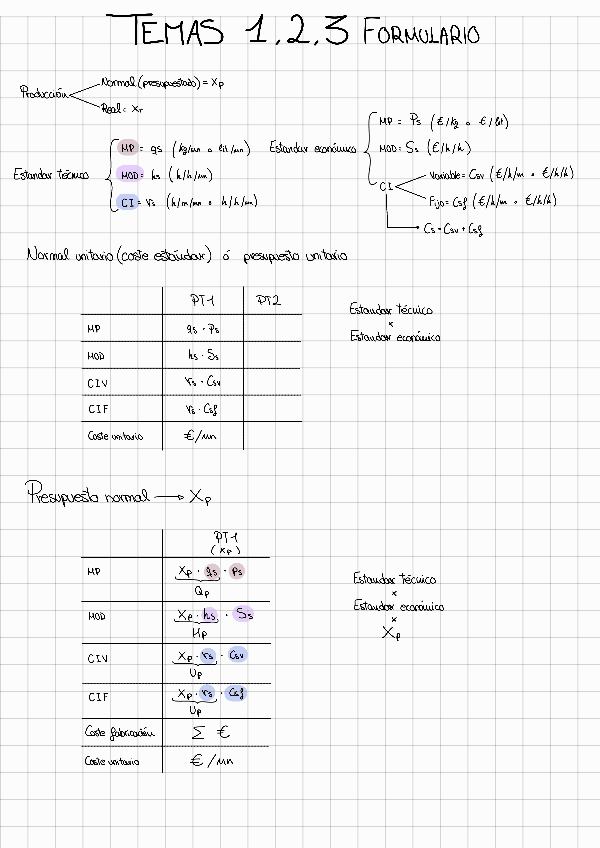 TEMAS 1,2,3 FORMULARIO
Producción
Normal (presupuestado) = Xp
Real = Xr
Estandar técnico
MP = qs (kg/un o lit/un)
MOD = hs (h/h/un)
CI = rs (h/m/un o h/h/un)
Estandar económico
MP = Ps (€/kg o €/lit)
MOD = Ss (€/h/h)
CI
Variable = Csv (€/h/m o €/h/h)
Fijo = Csf (€/h/m o €/h/h)
Cs = Csv + Csf
Normal unitario (coste estándar) ó presupuesto unitario
PT1 PT2
MP qs · Ps
MOD hs · Ss
CIV rs · Csv
CIF rs · Csf
Coste unitario €/un
Estandar técnico
x
Estandar económico
Presupuesto normal → Xp
PT1
(Xp)
MP Xp · qs · Ps
Qp
MOD Xp · hs · Ss
Hp
CIV Xp · rs · Csv
Up
CIF Xp · rs · Csf
Up
Coste fabricación Σ €
Coste unitario €/un
Estandar técnico
x
Estandar económico
x
Xp